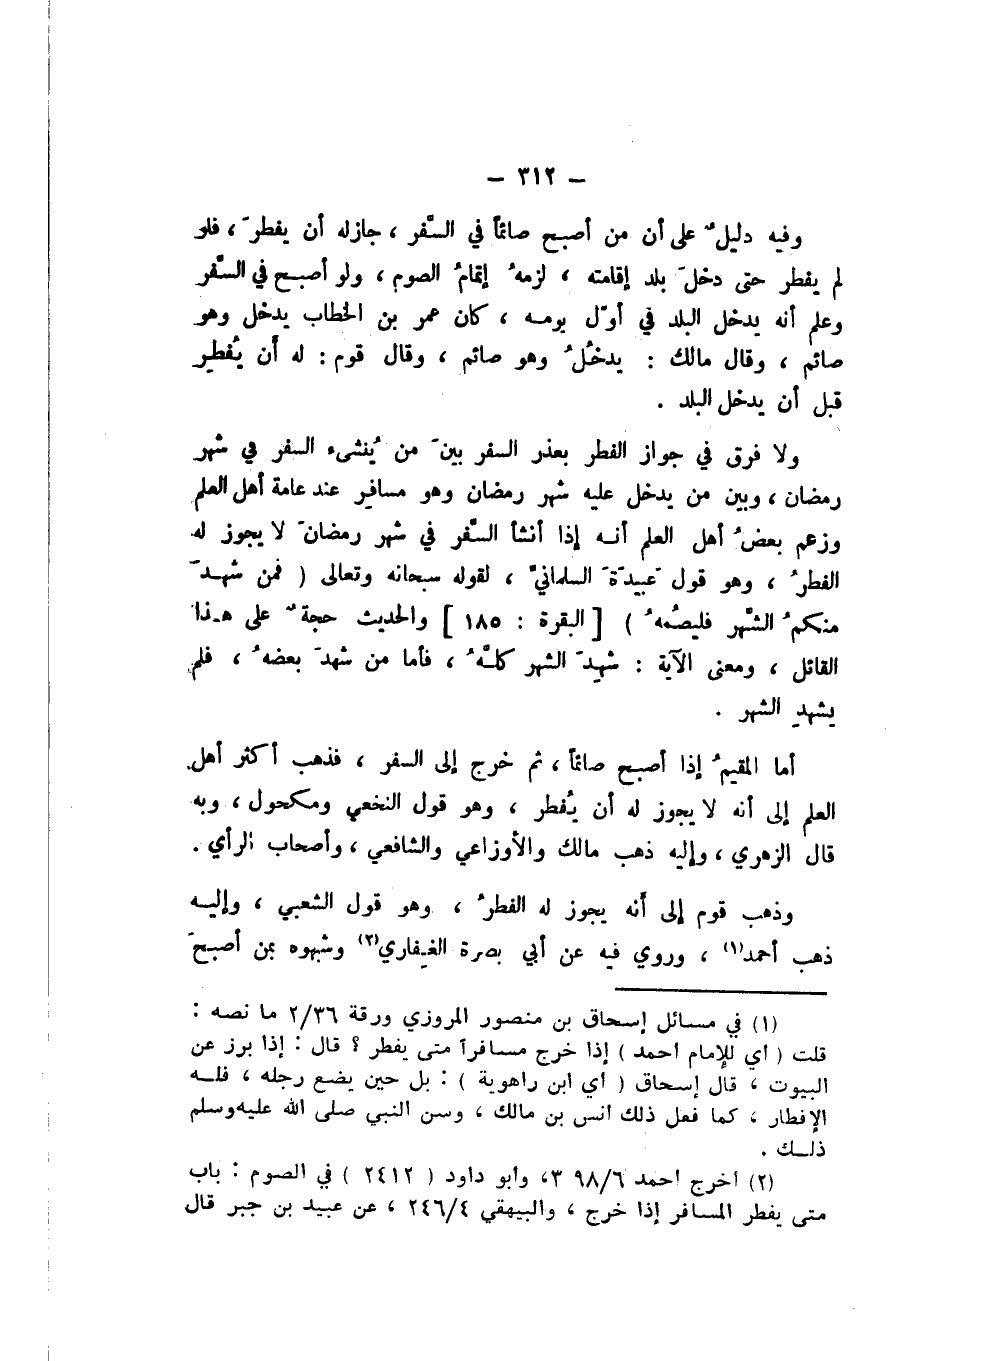 – ٣١٢ –
وفيه دليلٌ على أن من أصبح صائماً في السَّفر ، جازله أن يفطرَ ، فلو
لم يفطر حتى دخلَ بلد إقامته ، لزمهُ إتمامُ الصوم ، ولو أصبح في السَّفر
وعلم أنه يدخل البلد في أوّل يومه ، كان عمر بن الخطاب يدخل وهو
صائم ، وقال مالك : يدخُلُ وهو صائم ، وقال قوم : له أن يُفطِر
قبل أن يدخل البلد .
ولا فرق في جواز الفطر بعذر السفر بينَ من يُنشىء السفر في شهر
رمضان ، وبين من يدخل عليه شهر رمضان وهو مسافر عند عامة أهل العلم
وزعم بعضُ أهل العلم أنه إذا أنشأ السَّفر في شهر رمضانَ لا يجوز له
الفطرُ ، وهو قول عَبيدَةَ السلمانيّ ، لقوله سبحانه وتعالى ( فمن شهدَ
منكمُ الشَّهر فليصُمهُ ) [ البقرة : ١٨٥ ] والحديث حجةٌ على هذا
القائل ، ومعنى الآية : شهِدَ الشهر كلَّهُ ، فأما من شهدَ بعضهُ ، فلم
يشهدِ الشهر .
أما المقيمُ إذا أصبح صائماً ، ثم خرج إلى السفر ، فذهب أكثر أهل
العلم إلى أنه لا يجوز له أن يُفطر ، وهو قول النخعي ومكحول ، وبه
قال الزهري ، وإليه ذهب مالك والأوزاعي والشافعي ، وأصحاب الرأي .
وذهب قوم إلى أنه يجوز له الفطرُ ، وهو قول الشعبي ، وإليه
ذهب أحمد(١) ، وروي فيه عن أبي بصرة الغفاري(٢) وشبهوه بمن أصبحَ
(١) في مسائل إسحاق بن منصور المروزي ورقة ٢/٣٦ ما نصه :
قلت ( أي للإمام أحمد ) إذا خرج مسافراً متى يفطر ؟ قال : إذا برز عن
البيوت ، قال إسحاق ( أي ابن راهوية ) : بل حين يضع رجله ، فله
الإفطار ، كما فعل ذلك أنس بن مالك ، وسن النبي صلى الله عليه وسلم
ذلك .
(٢) أخرج أحمد ٣٩٨/٦ ، وأبو داود ( ٢٤١٢ ) في الصوم : باب
متى يفطر المسافر إذا خرج ، والبيهقي ٢٤٦/٤ ، عن عبيد بن جبر قال